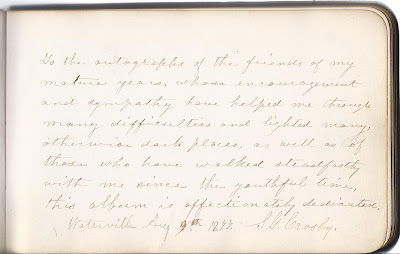 To the autographs of the friends of my
mature years, whose encouragement
and sympathy have helped me through
many difficulties and lighted many,
otherwise dark places, as well as of
those who have walked steadfastly
with me since the youthful time,
this album is affectionately dedicated.
Waterville Aug 9th 1877. S. G. Crosby.